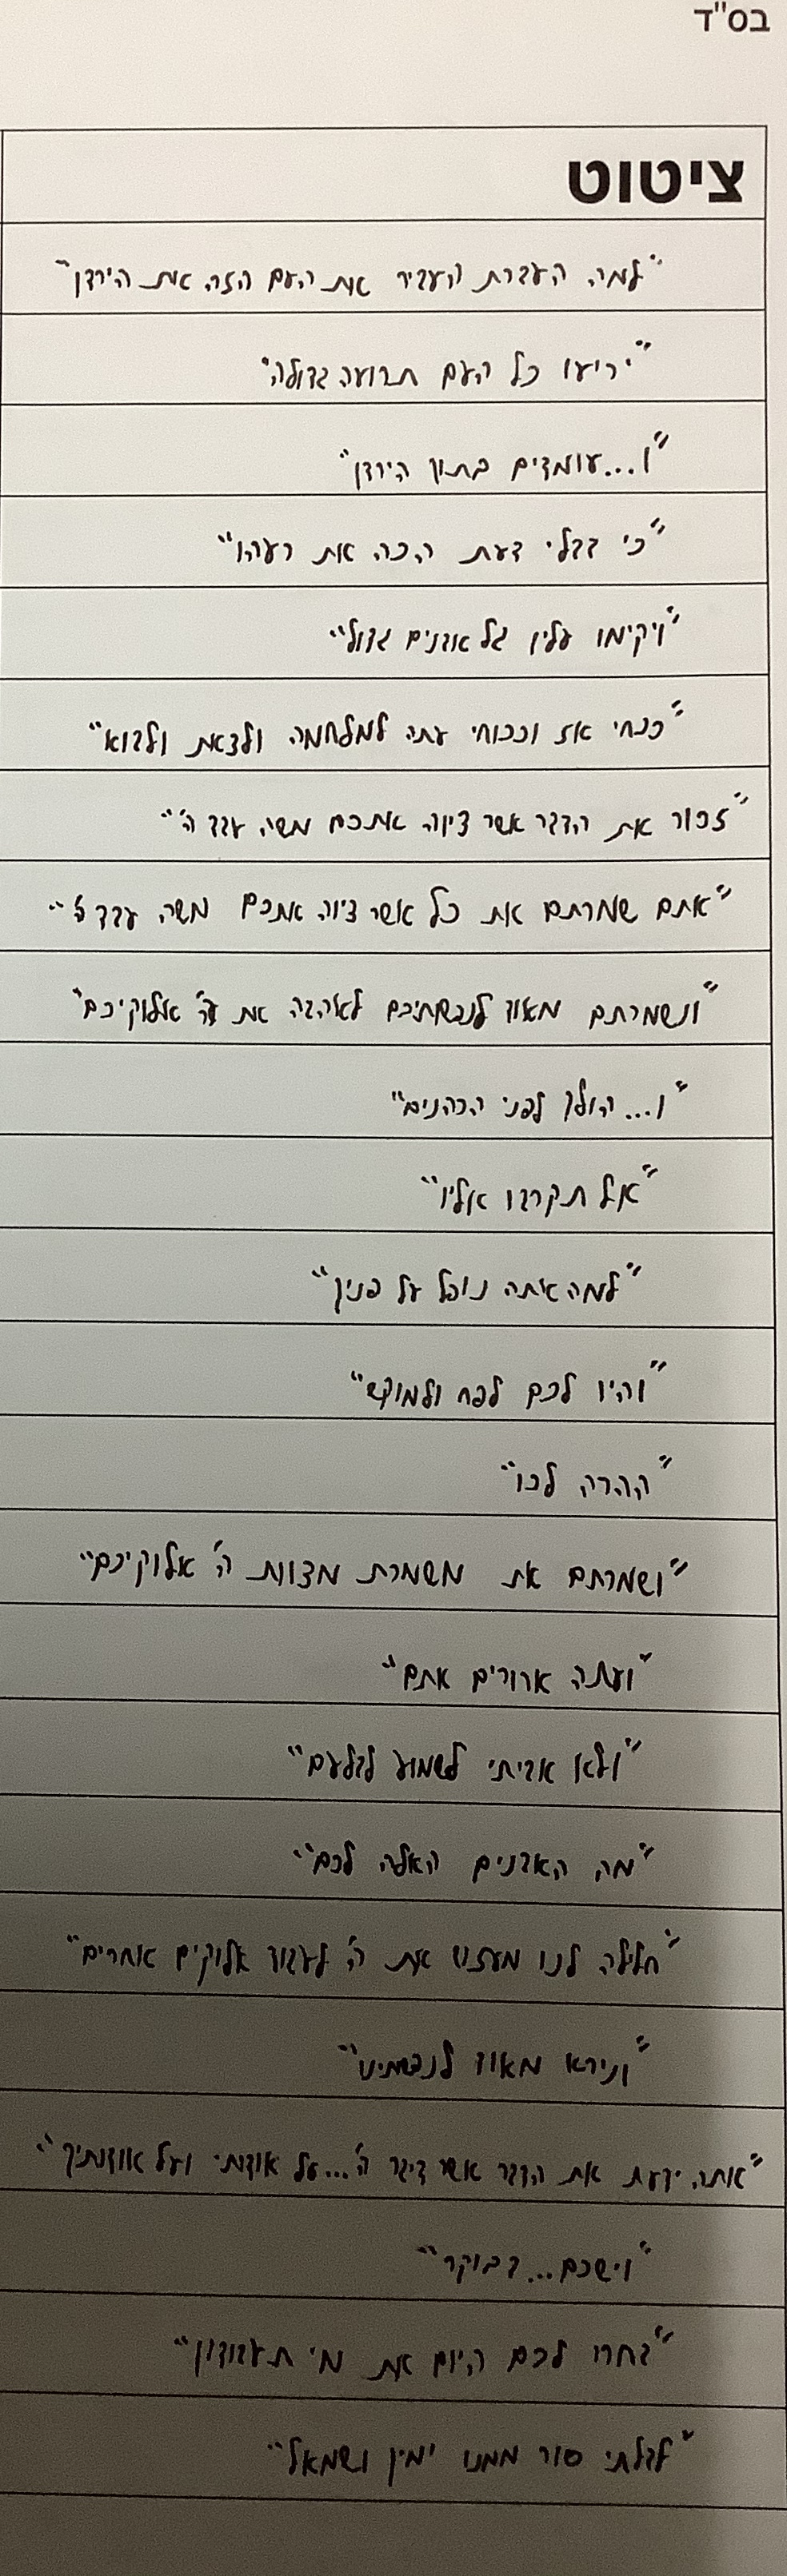 בס"ד
ציטוט
"למה העברת העביר את העם הזה את הירדן"
"יריעו כל העם תרועה גדולה"
"ו...עומדים בתוך הירדן"
"כי בבלי דעת הכה את רעהו"
"ויקימו עליו גל אבנים גדול"
"ככחי אז וככוחי עתה למלחמה ולצאת ולבוא"
"זכור את הדבר אשר ציוה אתכם משה עבד ה'"
"אתם שמרתם את כל אשר ציוה אתכם משה עבד ה'"
"ונשמרתם מאוד לנפשותיכם לאהבה את ה' אלוקיכם"
"ו... הולך לפני הכהנים"
"אל תקרבו אליו"
"למה אתה נופל על פניך"
"והיו לכם לפח ולמוקש"
"ההרה לכו"
"ושמרתם את משמרת מצוות ה' אלוקיכם"
"ועתה ארורים אתם"
"ולא אביתי לשמוע לבלעם"
"מה האבנים האלה לכם"
"חלילה לנו מעזוב את ה' לעבוד אלוקים אחרים"
"ונירא מאוד לנפשתינו"
"אתה ידעת את הדבר אשר דיבר ה'...על אודתי ועל אודותיך"
"וישכם...בבוקר"
"בחרו לכם היום את מי תעבודון"
"לבלתי סור ממנו ימין ושמאל"